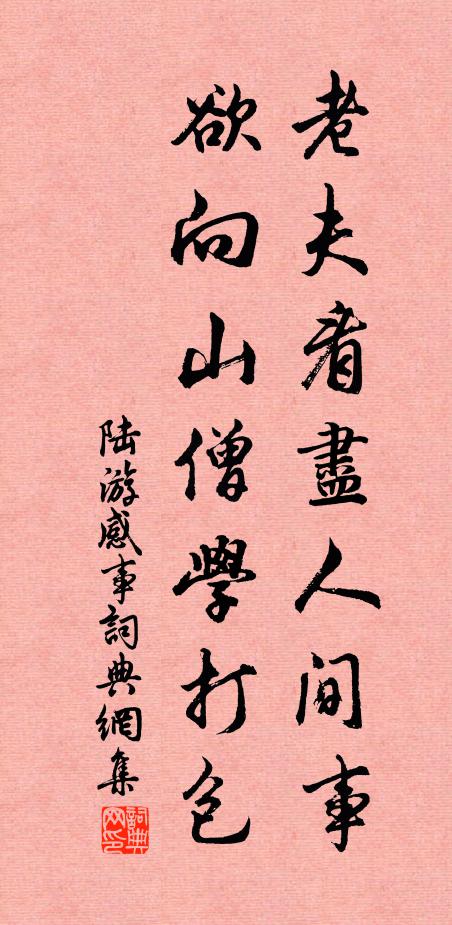 老夫看盡人间事
欲向山僧學打包
陆游感事詞典網集
詞典网印